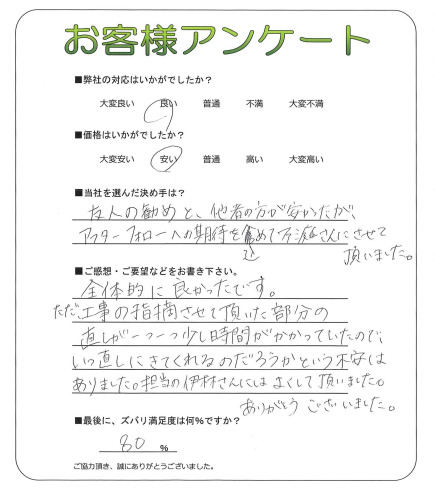 お客様アンケート
■弊社の対応はいかがでしたか？
大変良い 良い 普通 不満 大変不満
■価格はいかがでしたか？
大変安い 安い 普通 高い 大変高い
■当社を選んだ決め手は？
友人の勧めと、他者の方が安かったが、
アフターフォローへの期待を含めて さんにさせて
頂いました。
■ご感想・ご要望などをお書き下さい。
全体的に良かったです。
ただ工事の指摘させて頂いた部分の
直しが一つ一つ少し時間がかかっていたので、
いつ直しにきてくれるのだろうかという不安は
ありました。担当の伊林さんには よくして頂いました。
ありがとうございました。
■最後に、ズバリ満足度は何％ですか？
80 ％
ご協力頂き、誠にありがとうございました。